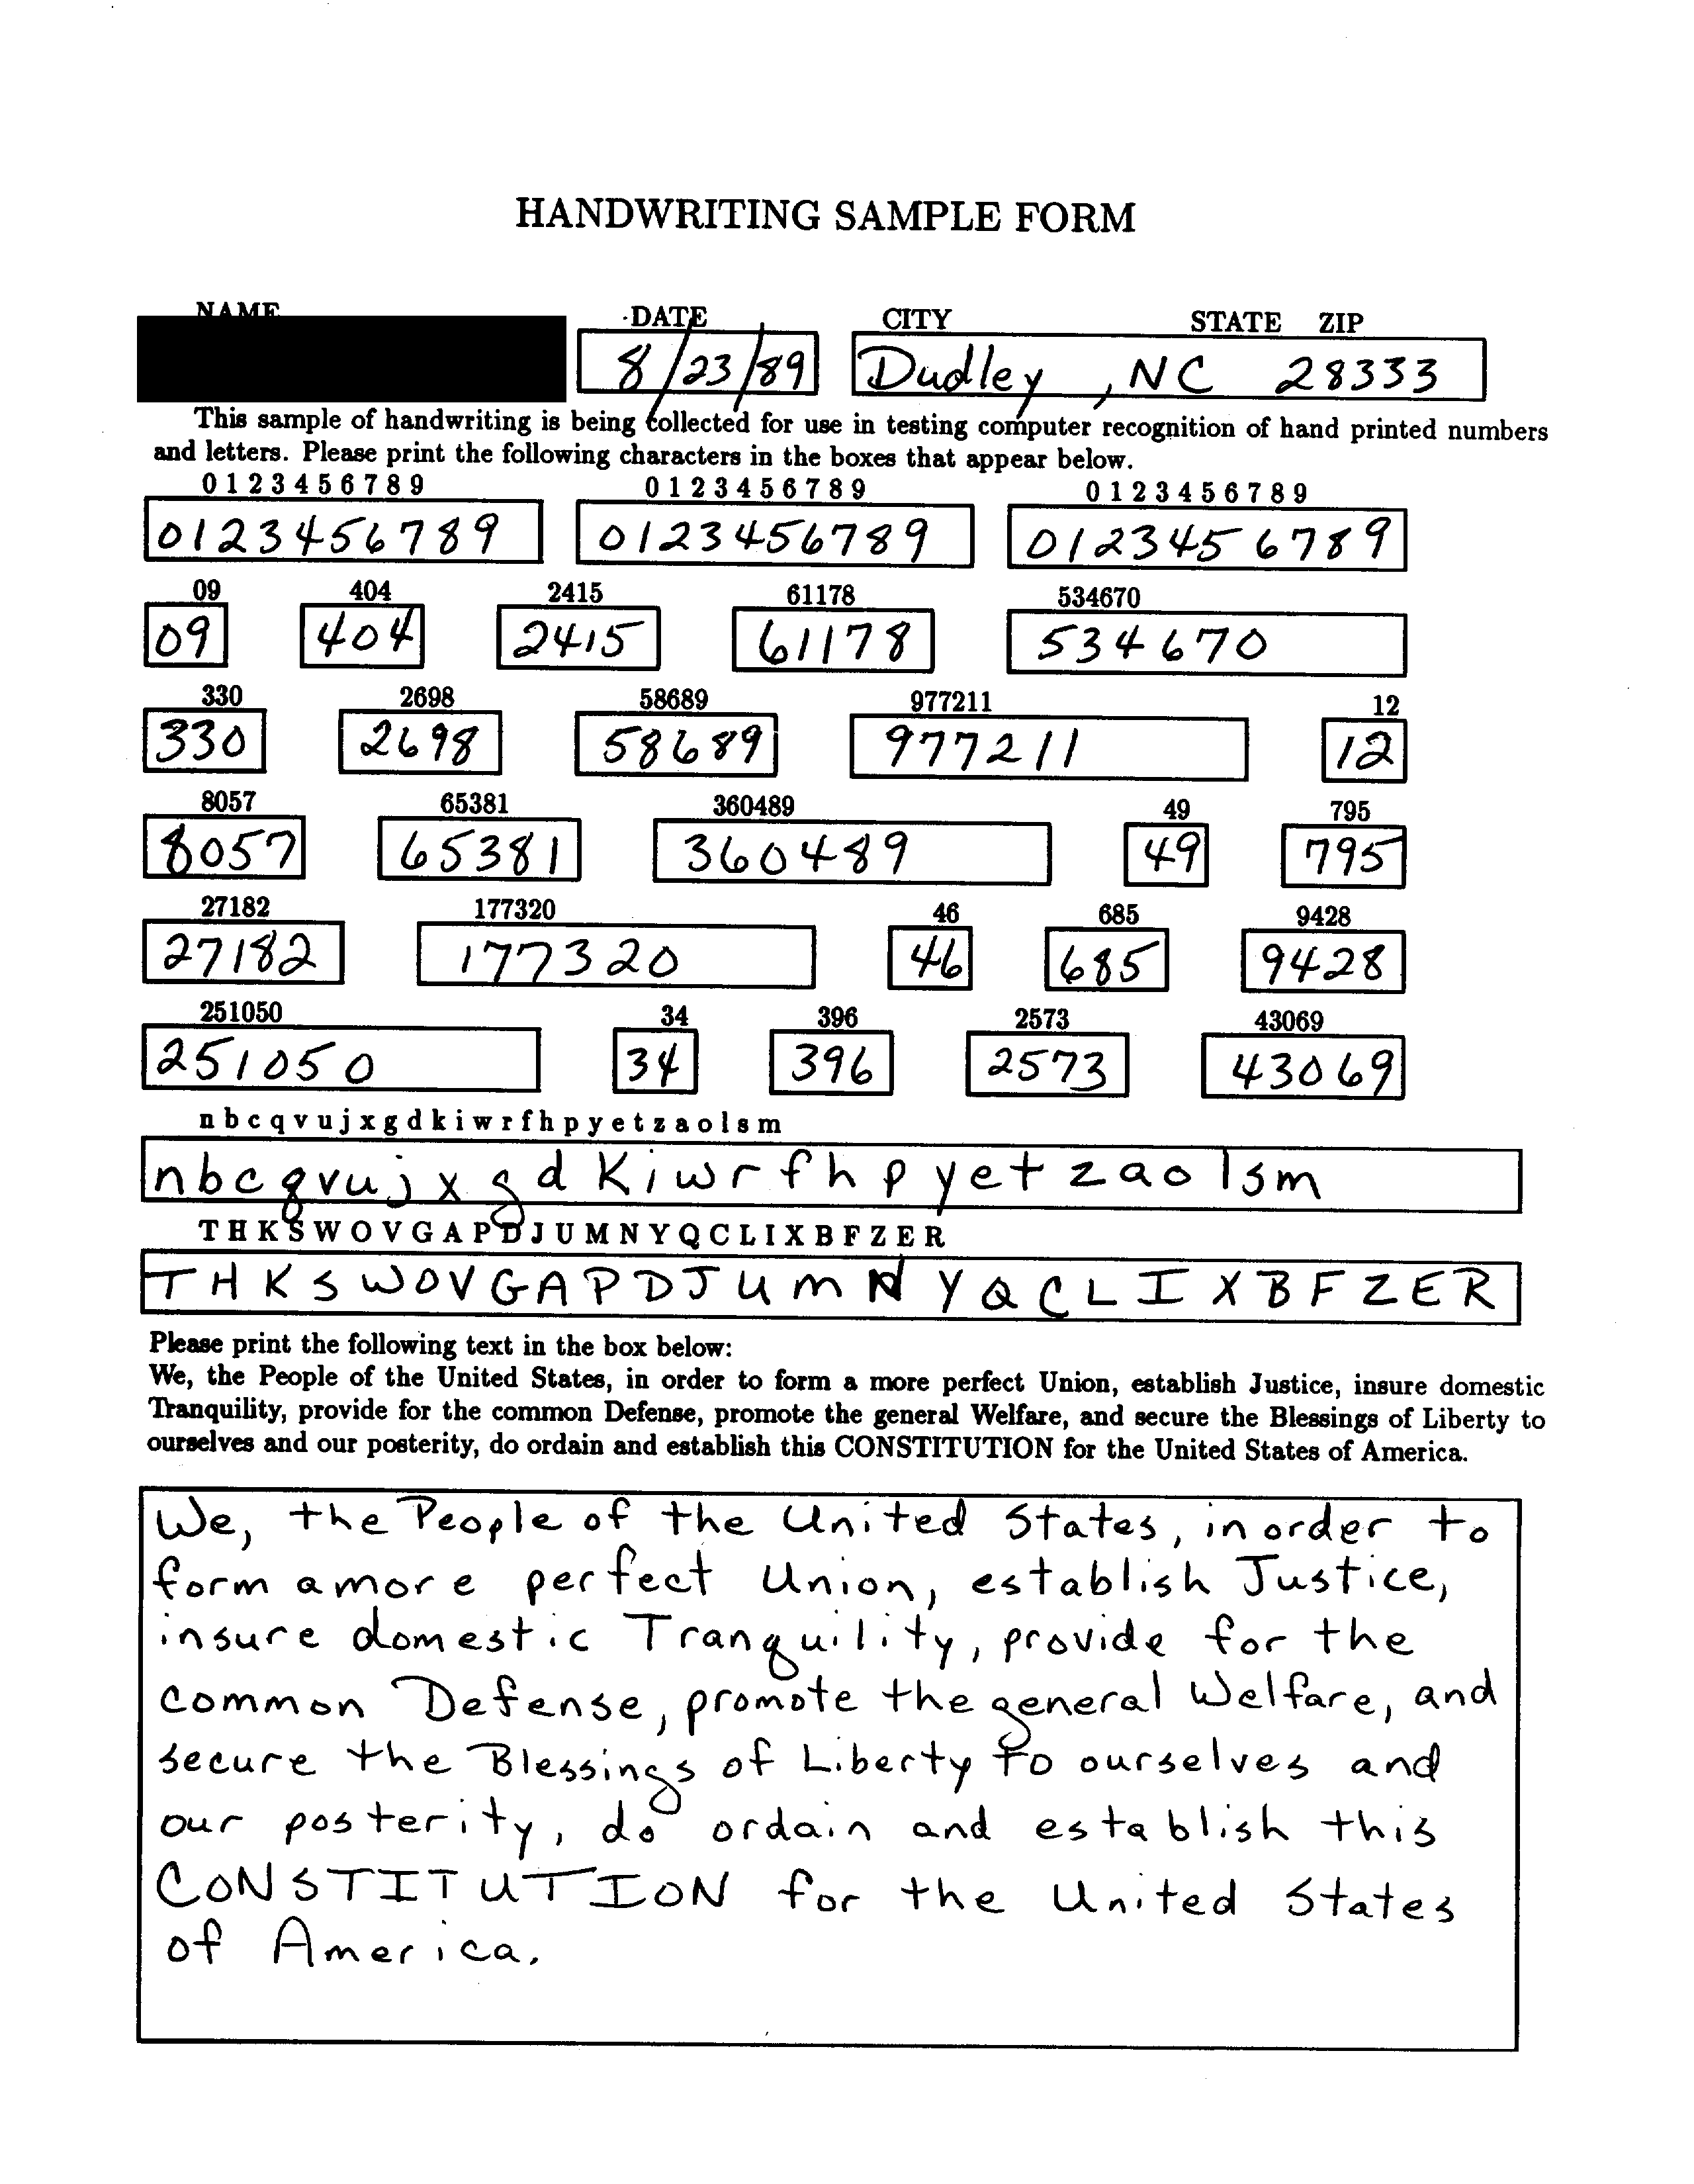 HANDWRITING SAMPLE FORM
NAME DATE CITY STATE ZIP
8/23/89 Dudley, NC 28333
This sample of handwriting is being collected for use in testing computer recognition of hand printed numbers
and letters. Please print the following characters in the boxes that appear below.
0 1 2 3 4 5 6 7 8 9 0 1 2 3 4 5 6 7 8 9 0 1 2 3 4 5 6 7 8 9
0123456789 0123456789 0123456789
09 404 2415 61178 534670
09 404 2415 61178 534670
330 2698 58689 977211 12
330 2698 58689 977211 12
8057 65381 360489 49 795
8057 65381 360489 49 795
27182 177320 46 685 9428
27182 177320 46 685 9428
251050 34 396 2573 43069
251050 34 396 2573 43069
n b c q v u j x g d k i w r f h p y e t z a o l s m
n b c q v u j x g d k i w r f h p y e t z a o l s m
T H K S W O V G A P D J U M N Y Q C L I X B F Z E R
T H K S W O V G A P D J U M N Y Q C L I X B F Z E R
Please print the following text in the box below:
We, the People of the United States, in order to form a more perfect Union, establish Justice, insure domestic
Tranquility, provide for the common Defense, promote the general Welfare, and secure the Blessings of Liberty to
ourselves and our posterity, do ordain and establish this CONSTITUTION for the United States of America.
We, the People of the United States, in order to
form a more perfect Union, establish Justice,
insure domestic Tranquility, provide for the
common Defense, promote the general Welfare, and
secure the Blessings of Liberty to ourselves and
our posterity, do ordain and establish this
CONSTITUTION for the United States
of America.